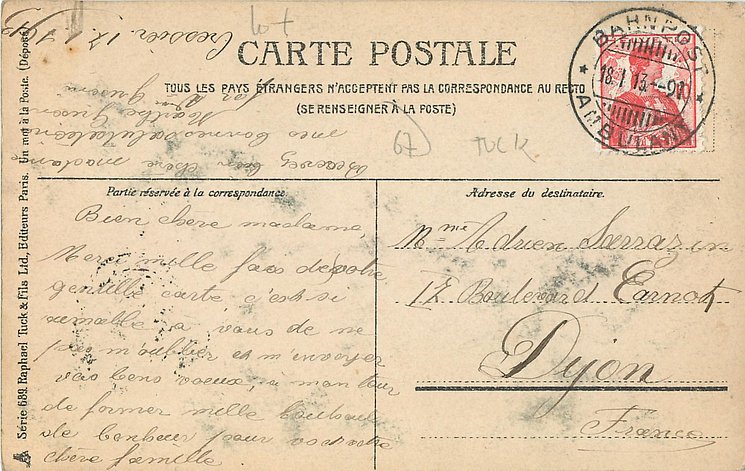 Cressier 17/1 1913
lot
CARTE POSTALE
TOUS LES PAYS ÉTRANGERS N'ACCEPTENT PAS LA CORRESPONDANCE AU RECTO
(SE RENSEIGNER À LA POSTE)
BAHNPOST
18.I.13.-9
AMBULANT
67
TUCK
Partie réservée à la correspondance.
Bien chère madame,
Merci mille fois de votre
gentille carte c'est si
aimable a vous de ne
pas m'oublier et m'envoyer
vos bons voeux, a mon tour
de former mille souhaits
de bonheur pour vous votre
chère famille
Recevez bien chère madame
mes bonnes salutations
Marthe
Adresse du destinataire.
Mme Adrien Sarrazin
17 Boulevard Carnot
Dijon
France
Série 689. Raphael Tuck & Fils Ltd., Editeurs Paris. Un mot à la Poste. (Déposé)